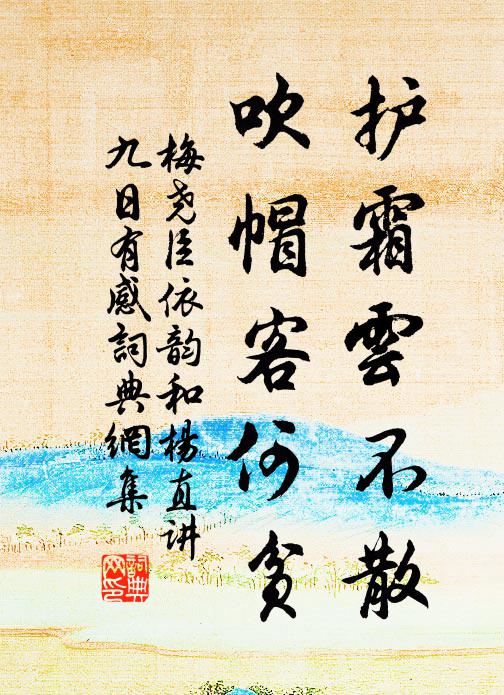 护霜雲不散
吹帽客何贫
梅尧臣依韵和楊直讲
九日有感詞典網集
詞典
网印